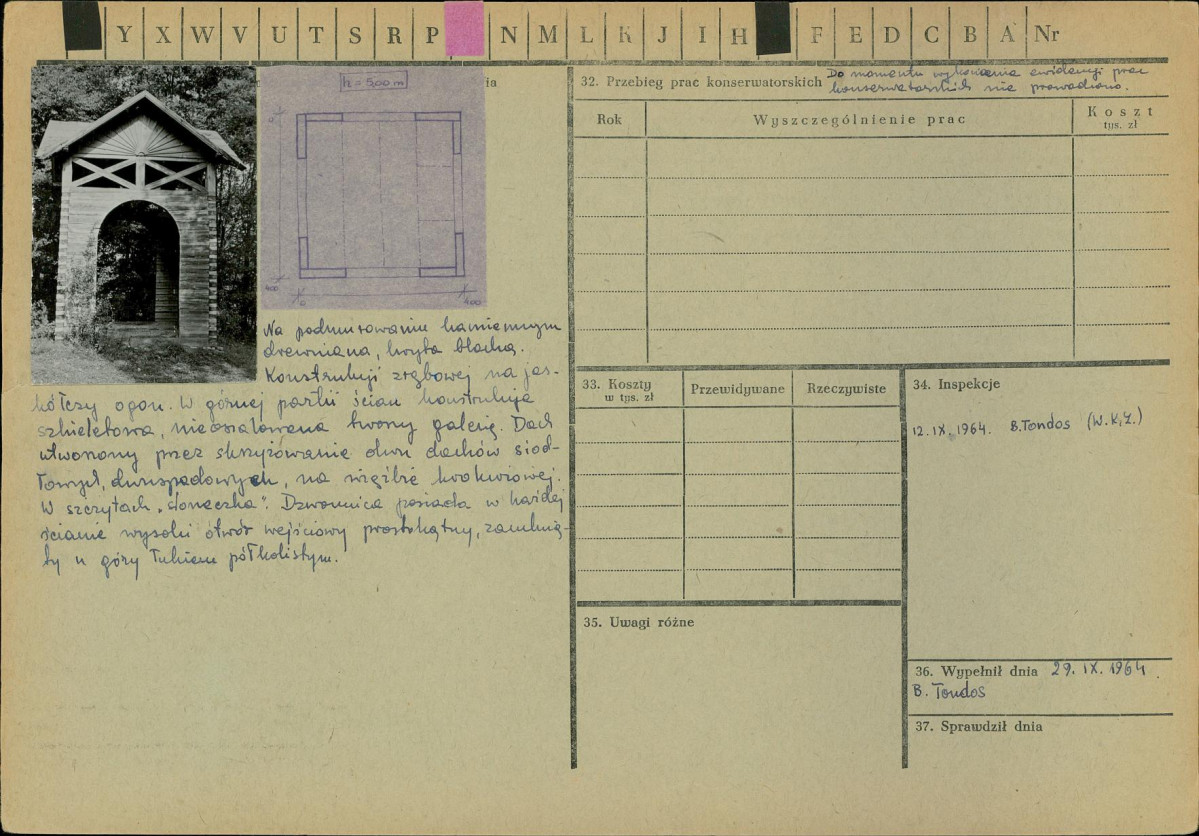 Y X W V U T S R P N M L K J I H F E D C B A Nr
ia
h = 5,00 m
0
400
0
400
Na podmurowaniu kamiennym
drewniana, kryta blachą.
Konstrukcji zrębowej na jas-
kółczy ogon. W górnej partii ścian konstrukcja
szkieletowa, nieoszalowana tworzy galerię. Dach
utworzony przez skrzyżowanie dwu dachów siod-
łowych, dwuspadowych, na więźbie krokwiowej.
W szczytach "słoneczka". Dzwonnica posiada w każdej
ścianie wysoki otwór wejściowy prostokątny, zamknię-
ty u góry łukiem półkolistym.
32. Przebieg prac konserwatorskich Do momentu wykonania ewidencji prac
konserwatorskich nie prowadzono.
Rok Wyszczególnienie prac Koszt
tys. zł
33. Koszty Przewidywane Rzeczywiste
w tys. zł
34. Inspekcje
12.IX.1964. B.Tondos (W.K.Z.)
35. Uwagi różne
36. Wypełnił dnia 29.IX.1964.
B. Tondos
37. Sprawdził dnia